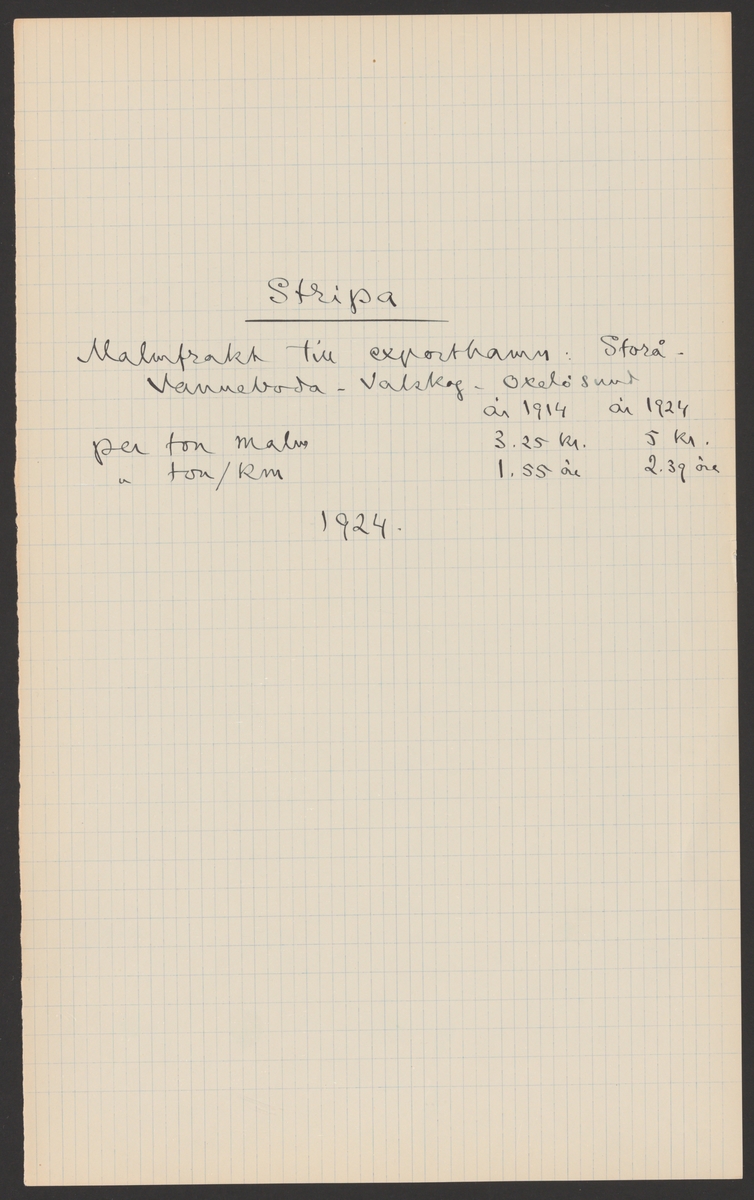 Stripa
Malmfrakt till exporthamn: Storå -
Vanneboda - Valskog - Oxelösund
år 1914 år 1924
per ton malm 3.25 kr. 5 kr.
" ton/km 1.55 öre 2.39 öre
1924.